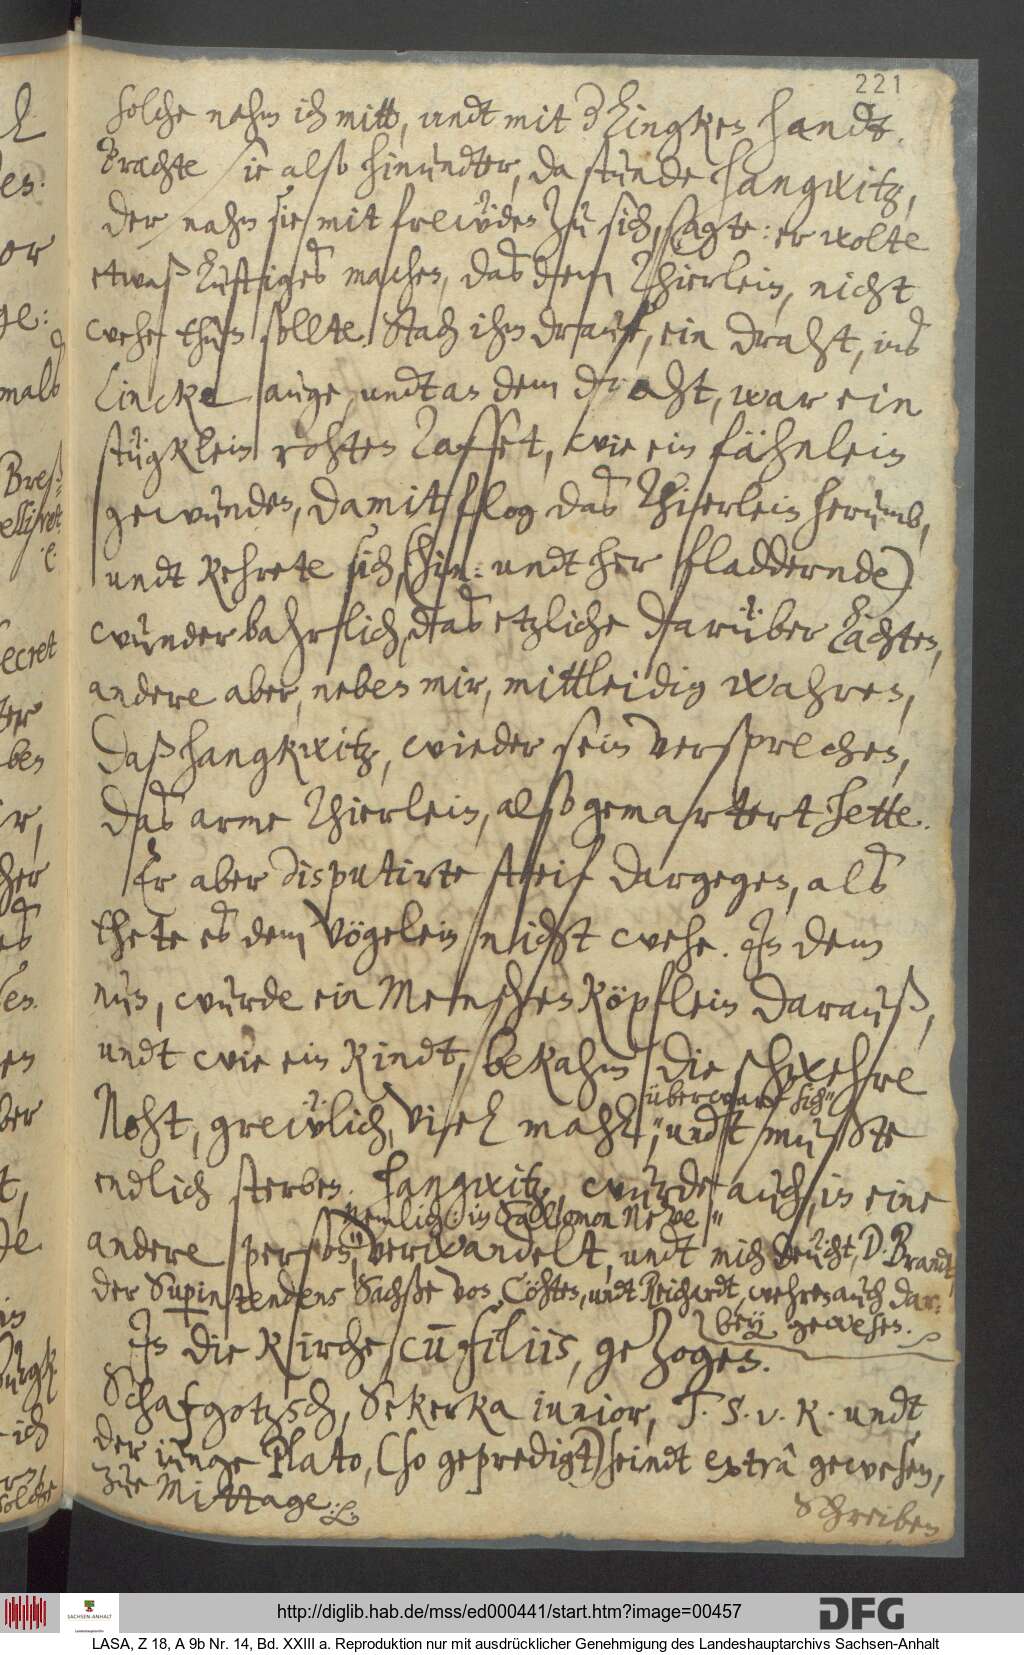 221
solche nahm ich mitt, undt mit Zhingken handt.
Brachte sie also hinundter, da stunde Hangwitz,
der nahm sie mit frewden zu sich, sagte: er wolte
etwaß lustiges machen, das dem Thierlein, nicht
wehe thun sollte. Stach ihm drauf, ein draht, ins
Lincke auge, undt an dem draht, war ein
stügklein rohten Taffet, wie ein fähnlein
gewunden, damit flog das Thierlein herumb,
undt kehrete sich, (hin: undt her fladdernde)
wunderbahrlich, das etzliche darüber lachten,
andere aber, neben mir, mittleidig wahren,
daß Hangkwitz, wieder sein versprechen,
das arme Thierlein, also gemartert hette.
Er aber disputirte steif dargegen, als
thete es dem Vögelein nicht wehe. In dem
nun, wurde ein Menschen köpflein darauß,
undt wie ein kindt, bekahm die schwehre
Noht, grewlich, viel mahl, " überwarf sich " undt mußte
endlich sterben. Hangwitz, wurde auch, in eine
andere person, " nemlich: in Sallomon Neve " verwandelt, undt mich deücht, D. Brandt,
der Sup intendens Sachße von Cöhten, undt Reichardt, wehren auch dar:
bey gewesen.
In die kirche cum filiis, gezogen.
Schafgotzsch, Sekerka iunior, T. S. v. K. undt
der iunge Plato, (so gepredigt) seindt extra gewesen,
zue Mittage.
Schreiben
http://diglib.hab.de/mss/ed000441/start.htm?image=00457
DFG
SACHSEN-ANHALT
LASA, Z 18, A 9b Nr. 14, Bd. XXIII a. Reproduktion nur mit ausdrücklicher Genehmigung des Landeshauptarchivs Sachsen-Anhalt